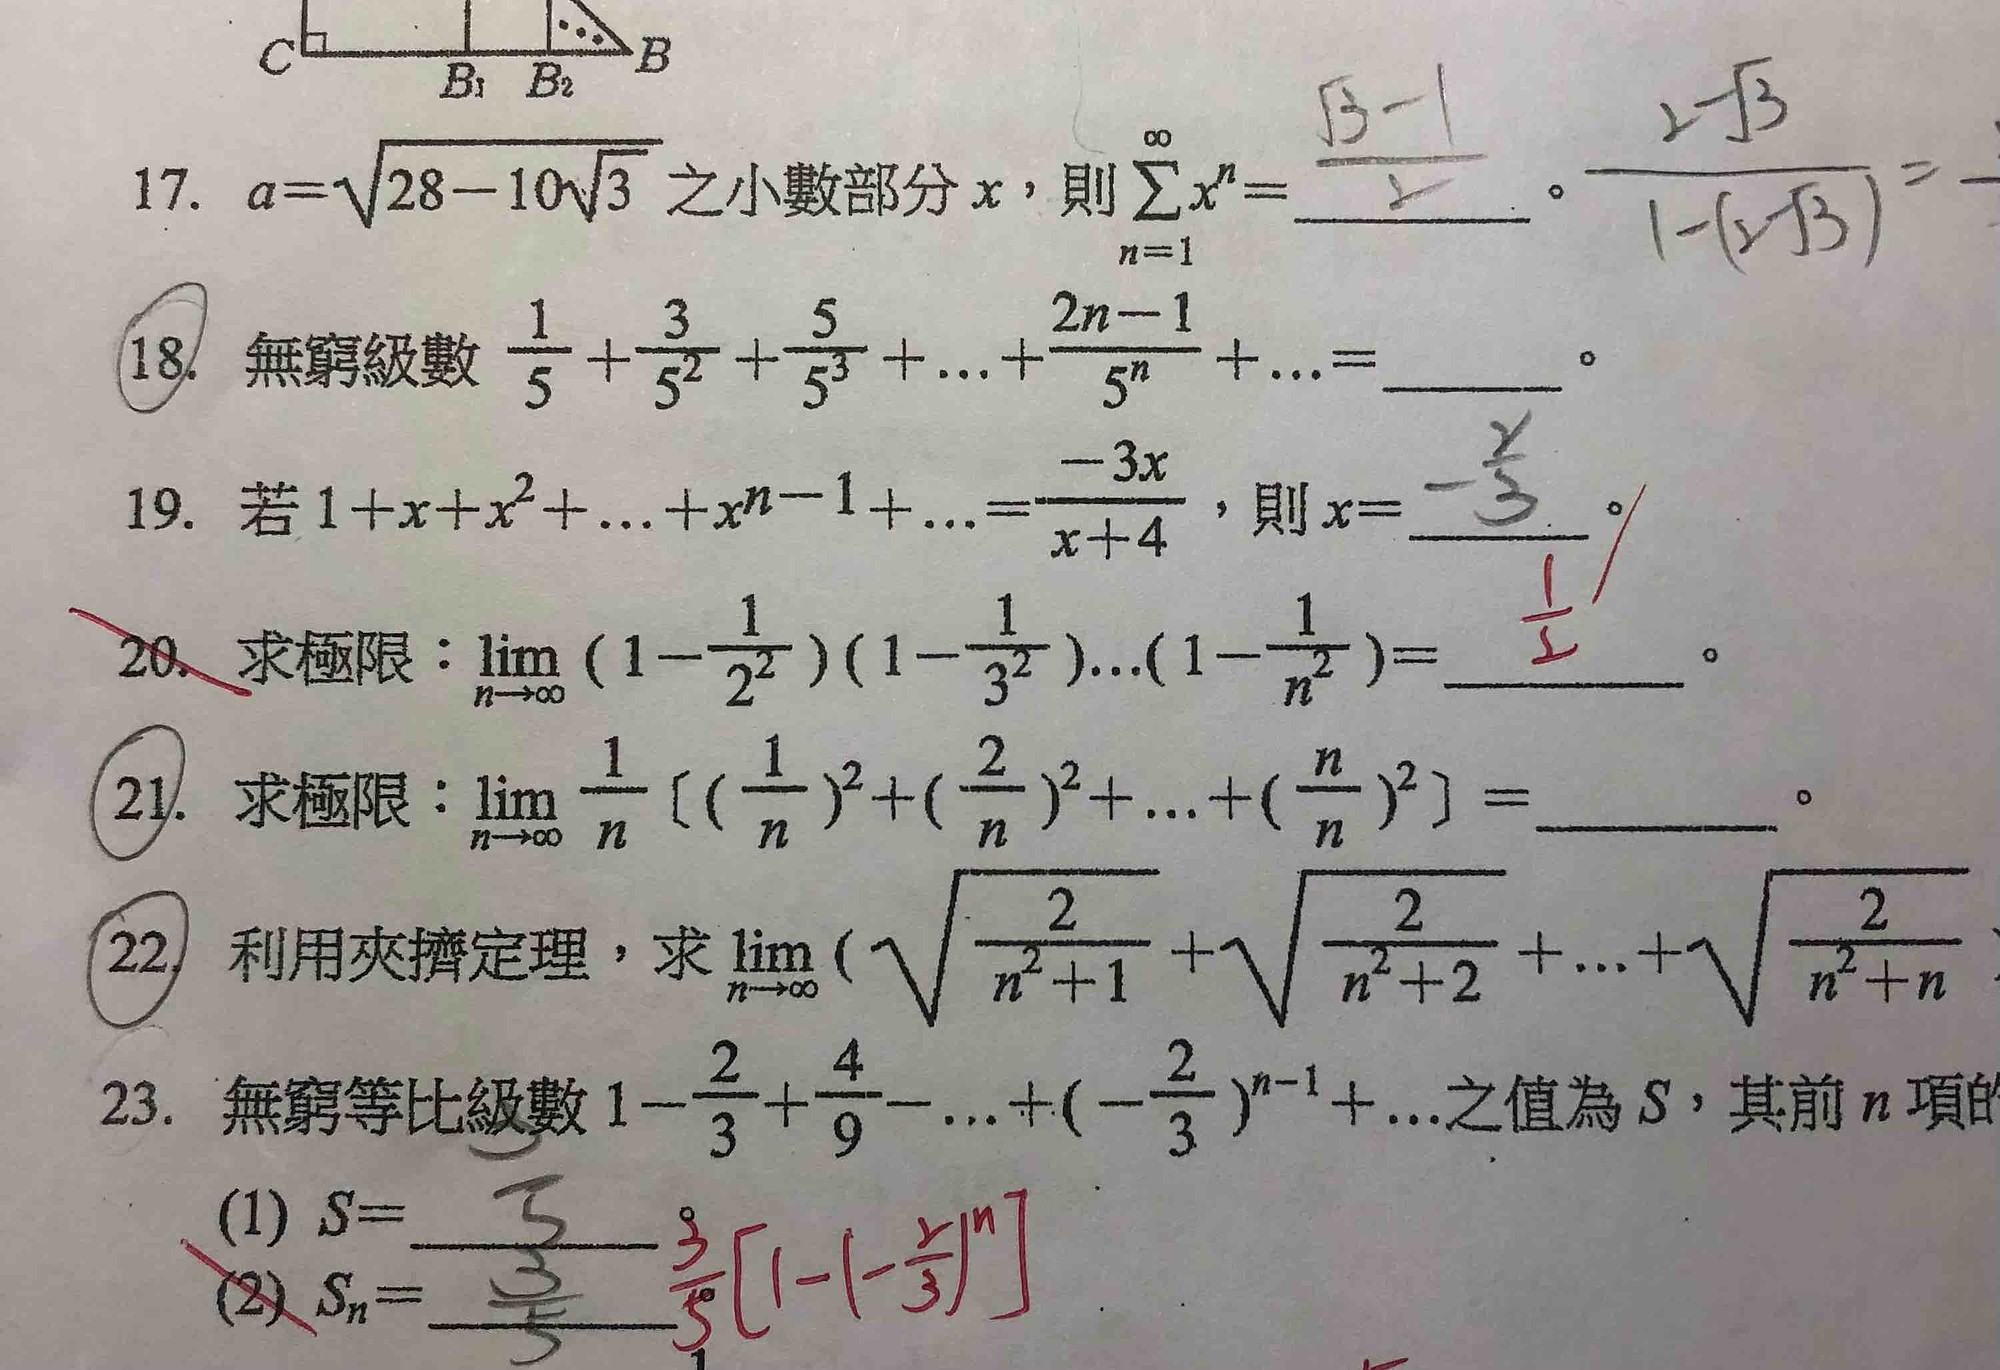 C B₁ B₂ B
√3-1
17. a=√(28-10√3) 之小數部分 x，則 ∑_{n=1}^{∞} xⁿ= (√3-1)/2 。 (2-√3)/(1-(2-√3)) =
18. 無窮級數 1/5+3/5²+5/5³+...+(2n-1)/5ⁿ+...=______。
19. 若 1+x+x²+...+xⁿ⁻¹+...=(-3x)/(x+4)，則 x= -2/3 。
20. 求極限：lim_{n→∞} (1-1/2²)(1-1/3²)...(1-1/n²)= 1/2 。
21. 求極限：lim_{n→∞} 1/n〔(1/n)²+(2/n)²+...+(n/n)²〕=______。
22. 利用夾擠定理，求 lim_{n→∞} (√(2/(n²+1))+√(2/(n²+2))+...+√(2/(n²+n))
23. 無窮等比級數 1-2/3+4/9-...+(-2/3)ⁿ⁻¹+...之值為 S，其前 n 項的
(1) S= 5 。
(2) Sₙ= 3/5 。 3/5[1-(-2/3)ⁿ]